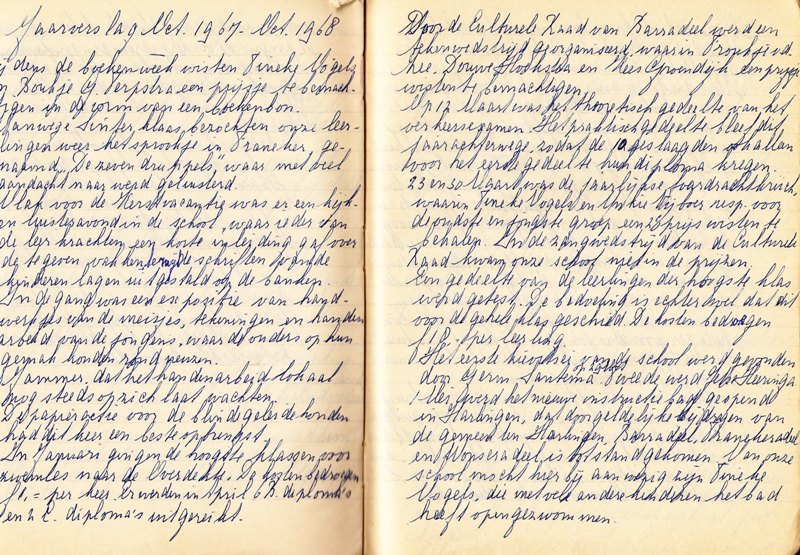 Jaarverslag Oct. 1967 - Oct. 1968
dens de boekenweek wisten Tineke Vogels
Boukje G. Terpstra een prijsje te bemach-
tigen in de vorm van een boekenbon.
vanwege Sinterklaas, bezochten onze leer-
lingen weer het sprookje in Franeker, ge-
naamd "De zeven druppels", waar met veel
aandacht naar werd geluisterd.
Vlak voor de Kerstvacantie was er een kijk-
en luisteravond in de school, waar ieder van
de leerkrachten een korte inleiding gaf over
de te geven vakken, terwijl de schriften van de
kinderen lagen uitgestald op de banken.
In de gang was een expozitie van hand-
werkjes van de meisjes, tekeningen en handen
arbeid van de jongens, waar de ouders op hun
gemak konden rond neuzen.
Jammer dat het handenarbeid lokaal
nog steeds op zich laat wachten.
De papieractie voor de blindegeleidehonden
had dit keer een beste opbrengst.
In Januari gingen de hoogste klassen voor
zwemles naar de Overdekte. De kosten bedroegen
ƒ1,= per keer. Er werden in April 6 B. diploma's
en 2 C. diploma's uitgereikt.
Door de Culturele Raad van Barradeel werd een
tekenwedstrijd georganiseerd, waarin Froukje v.d.
Zee, Douwe Hoekstra en Kees Groendijk een prijsje
wisten te bemachtigen.
Op 12 Maart was het theoretisch gedeelte van het
verkeersexamen. Het praktisch gedeelte bleef dit
jaar achterwege, zodat de geslaagden allen
voor het eerste gedeelte hun diploma kregen.
23 en 30 Maart was de jaarlijkse voordracht
waarin Tineke Vogels en Tjitske Bijlboer resp. voor
de oudste en jongste groep een 2e prijs wisten te
behalen. In de zangwedstrijd van de Culturele
Raad kwam onze school niet in de prijzen.
Een gedeelte van de leerlingen der hoogste klas
werd getest. De bedoeling is echter wel dat dit
voor de gehele klas geschied. De kosten bedroegen
per leerling.
Het eerste kievitsei van de school werd gevonden
door Germ Santema, tweede werd Heeringa
1 Mei werd het nieuwe instructie bad geopend
in Harlingen, dat door geldelijke bijdragen van
de gemeenten Harlingen, Barradeel, Franekeradeel
en Wonseradeel is totstandgekomen. Van onze
school mocht hierbij aanwezig zijn Tineke
Vogels, die met vele andere kinderen het bad
heeft opengezwommen.